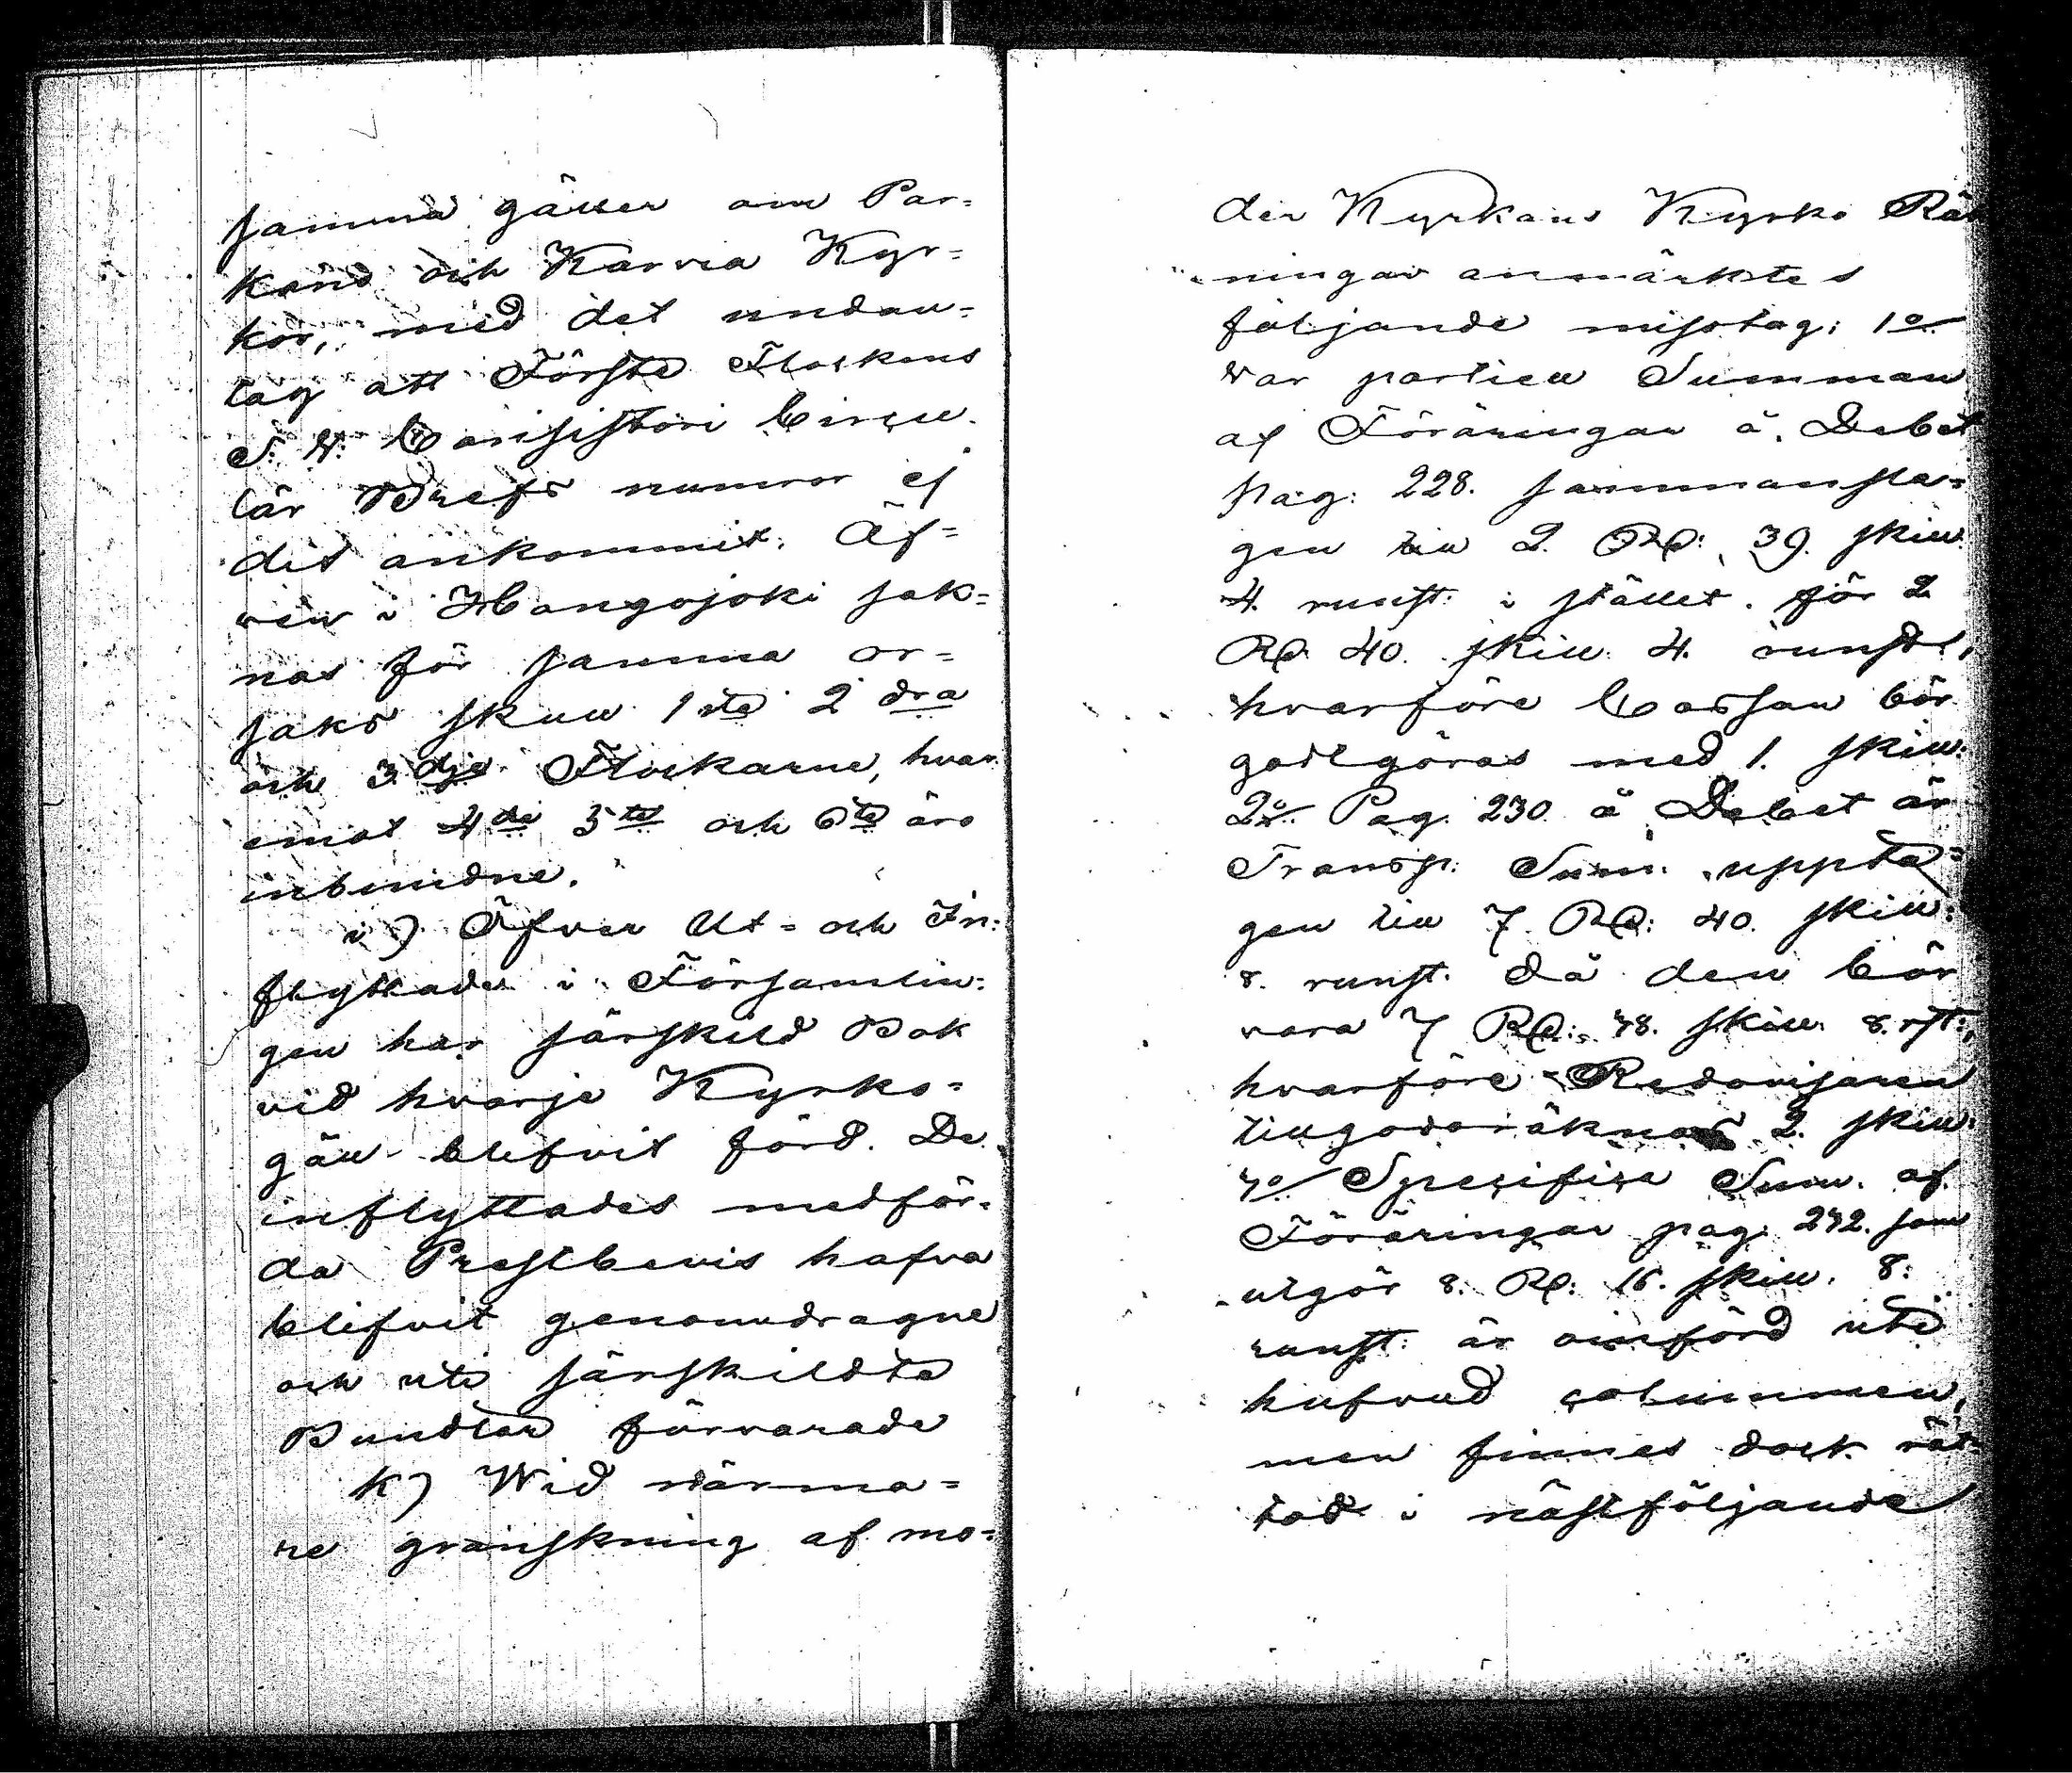 samma gäller om Par-
kano och Karvia Kyr-
kor, med det undan-
tag att Förste Flockens
S. V. Consistorii Circu-
lär Brefs numror ej
dit ankommit. Äf-
ven i Hongojoki sak-
nas för samma or-
saks skull 1sta 2dra
och 3dje Flockarne, hvar
emot 4de 5te och 6te äro
inbundne.
i) Öfver Ut- och In-
flyttade i Församlin-
gen har särskild Bok
vid hvarje Kyrko-
gäll blifvit förd. De
inflyttades medför-
da Prestbevis hafva
blifvit genomdragne
och uti särskildta
Bundlar förvarade
k) Wid närma-
re granskning af mo-
der Kyrkans Kyrko Räk
ningar anmärktes
följande misstag: 1o
var partiell Summan
af Föräringar å Debet
pag: 228. sammansla-
gen till 2. RD: 39. skill:
4. runst: i stället för 2
RD. 40. skill: 4. runst:,
hvarföre Cassan bör
godtgöras med 1. skill:
2o Pag. 230 å Debet är
Transp: Sum: uppta-
gen till 7. RD: 40. skill:
8. runst. då den bör
vara 7 RD: 38. skill: 8. rst:,
hvarföre Redovisaren
tillgodoräknas 2. skill:
3o Specifique Sum. af
Föräringar pag: 232. som
utgör 8. RD: 16. skill. 8:
runst: är oinförd uti
hufvud columnen,
men finnes dock rät-
tad i nästföljande